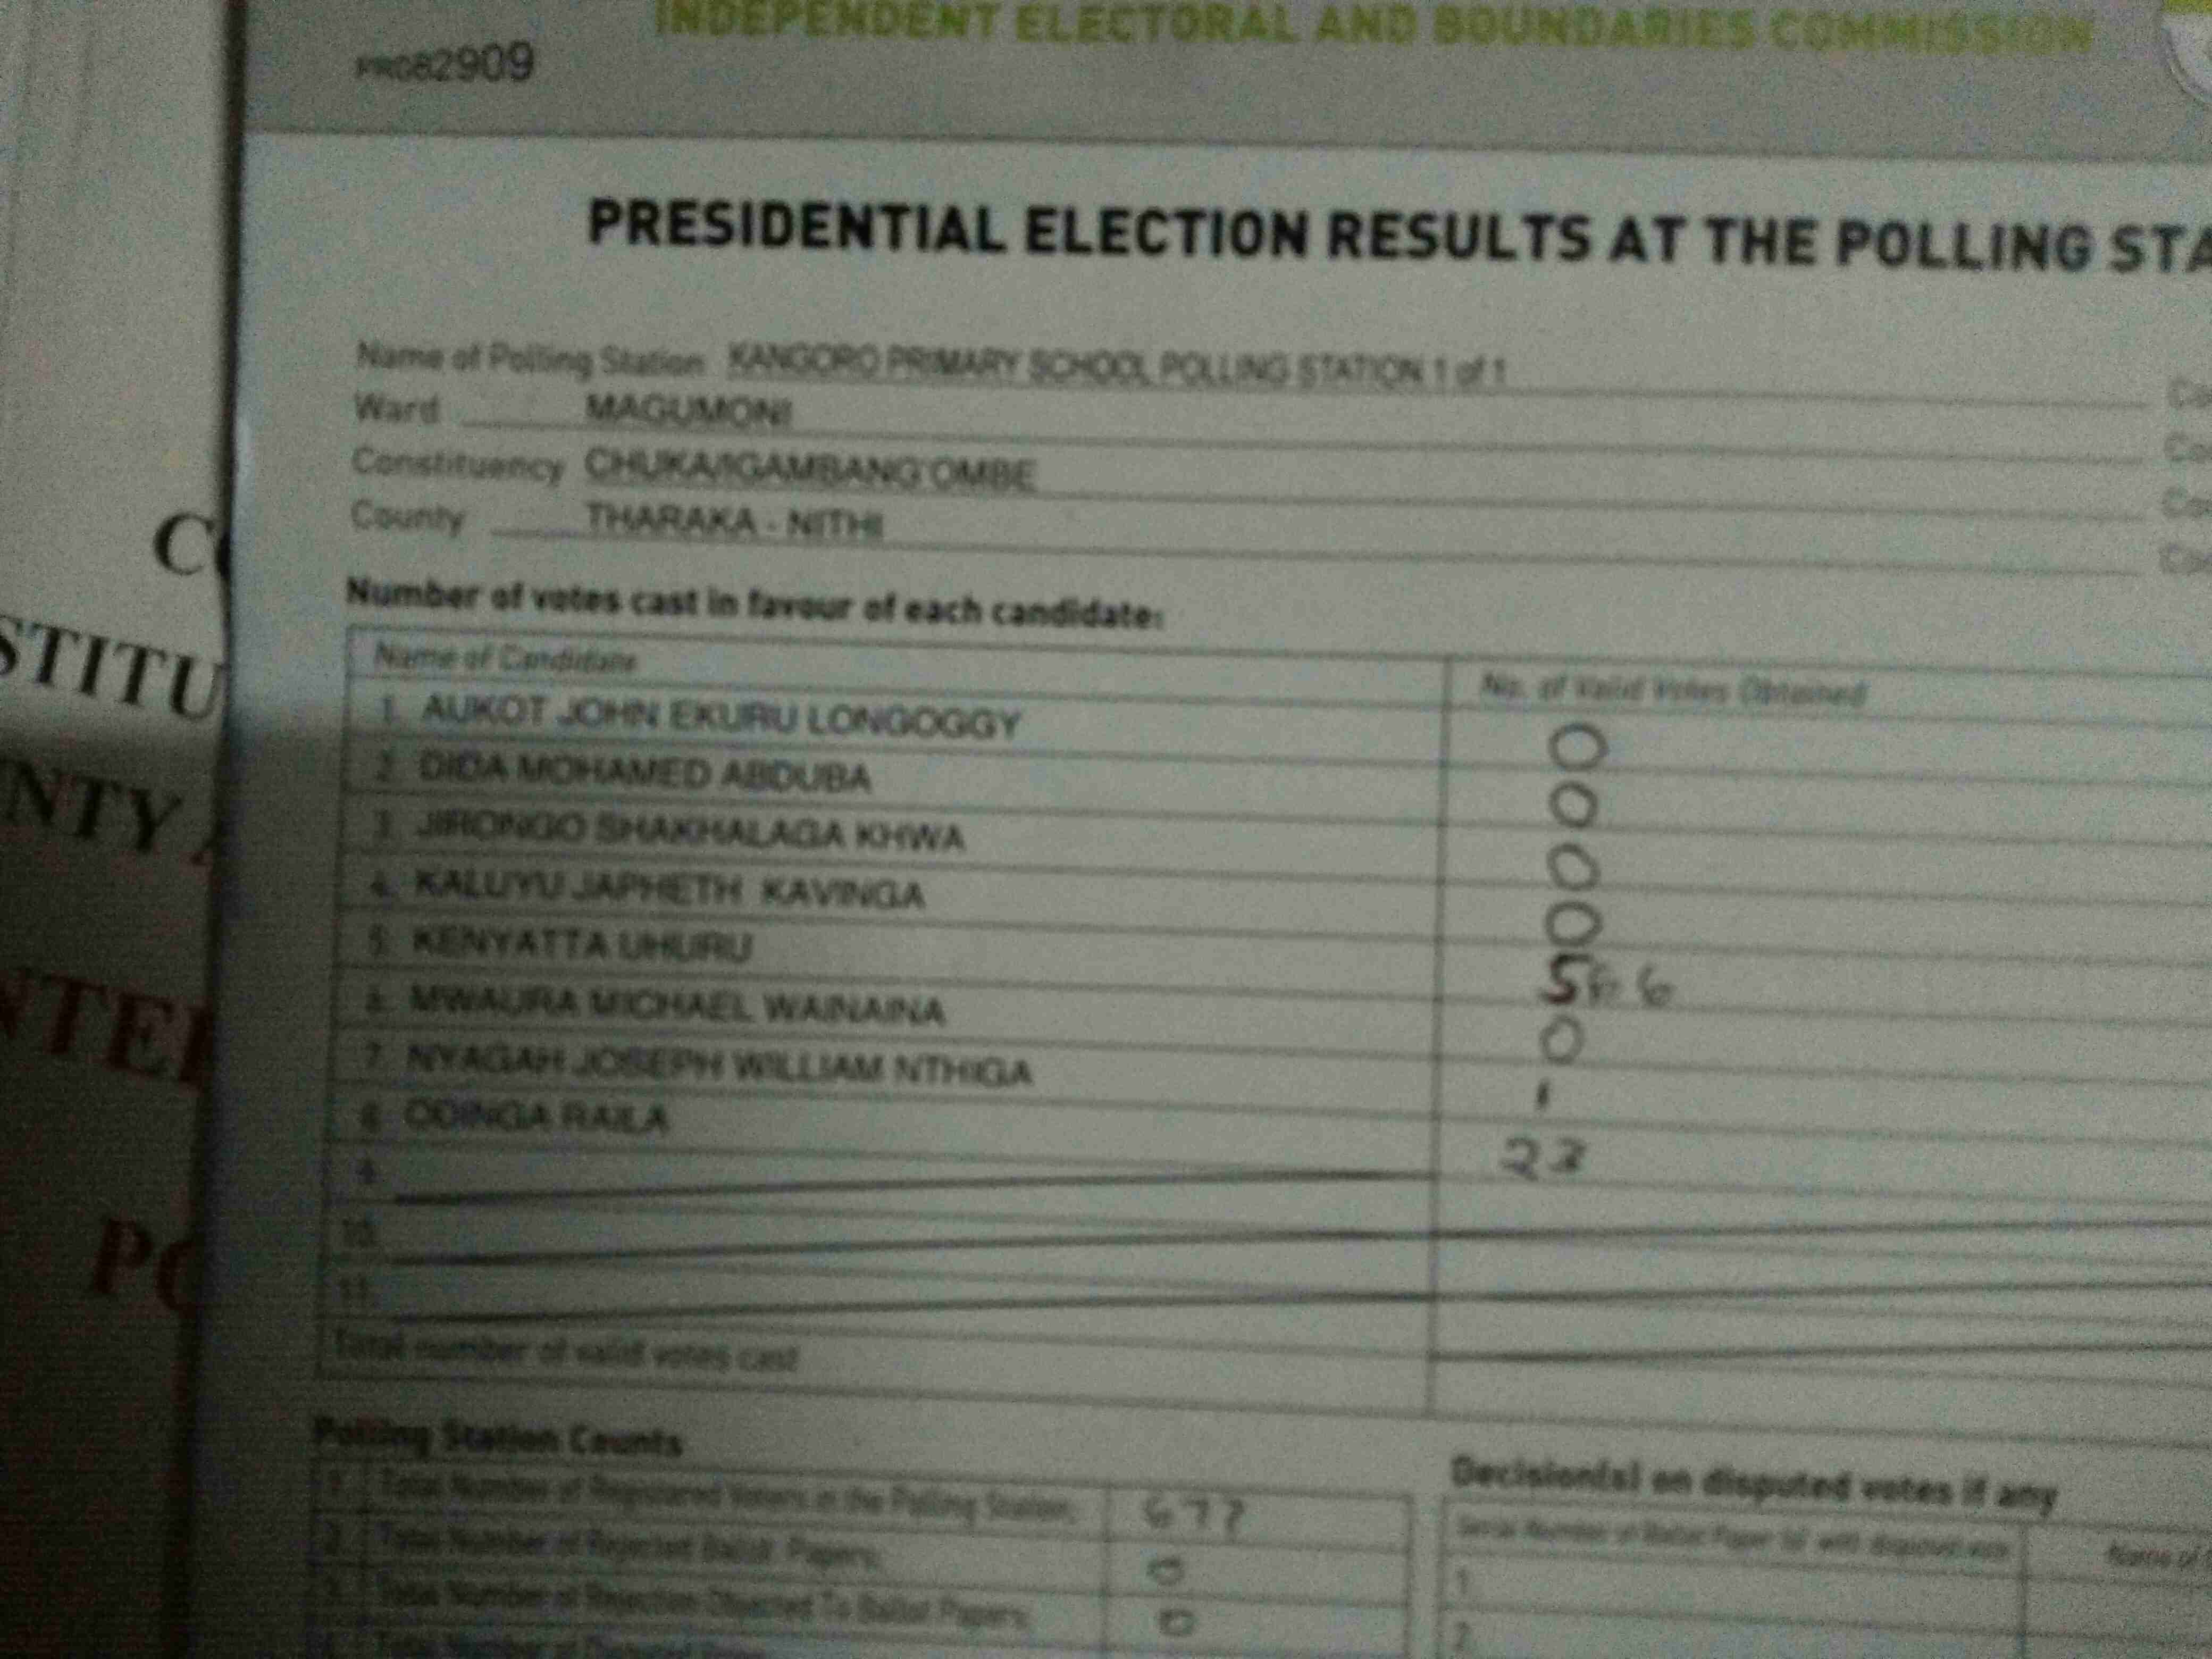 INDEPENDENT ELECTORAL AND BOUNDARIES COMMISSION
82909
PRESIDENTIAL ELECTION RESULTS AT THE POLLING STA
Name of Polling Station KANGORO PRIMARY SCHOOL POLLING STATION 1 of 1
Ward MAGUMONI
Constituency CHUKA/IGAMBANG'OMBE
County THARAKA - NITHI
Number of votes cast in favour of each candidate:
Name of Candidate No. of Valid Votes Obtained
1. AUKOT JOHN EKURU LONGOGGY 0
2. DIDA MOHAMED ABDUBA 0
3. JIRONGO SHAKHALAGA KHWA 0
4. KALUYU JAPHETH KAVINGA 0
5. KENYATTA UHURU
6. MWAURA MICHAEL WAINAINA 0
7. NYAGAH JOSEPH WILLIAM NTHIGA 1
8. ODINGA RAILA 23
9.
10.
11.
Total number of valid votes cast
Polling Station Counts
1. Total Number of Registered Voters in the Polling Station; 677
2. Total Number of Rejected Ballot Papers; 0
3. Total Number of Rejection Objected To Ballot Papers; 0
Decision(s) on disputed votes if any
Serial Number of Ballot Paper (s) with disputed vote Name of
1.
2.
STITU
NTY
NTE